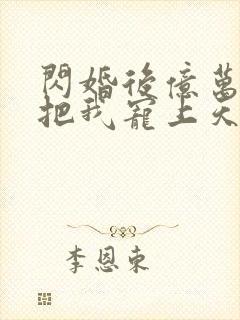 閃婚後億萬
把我寵上天
李恩東